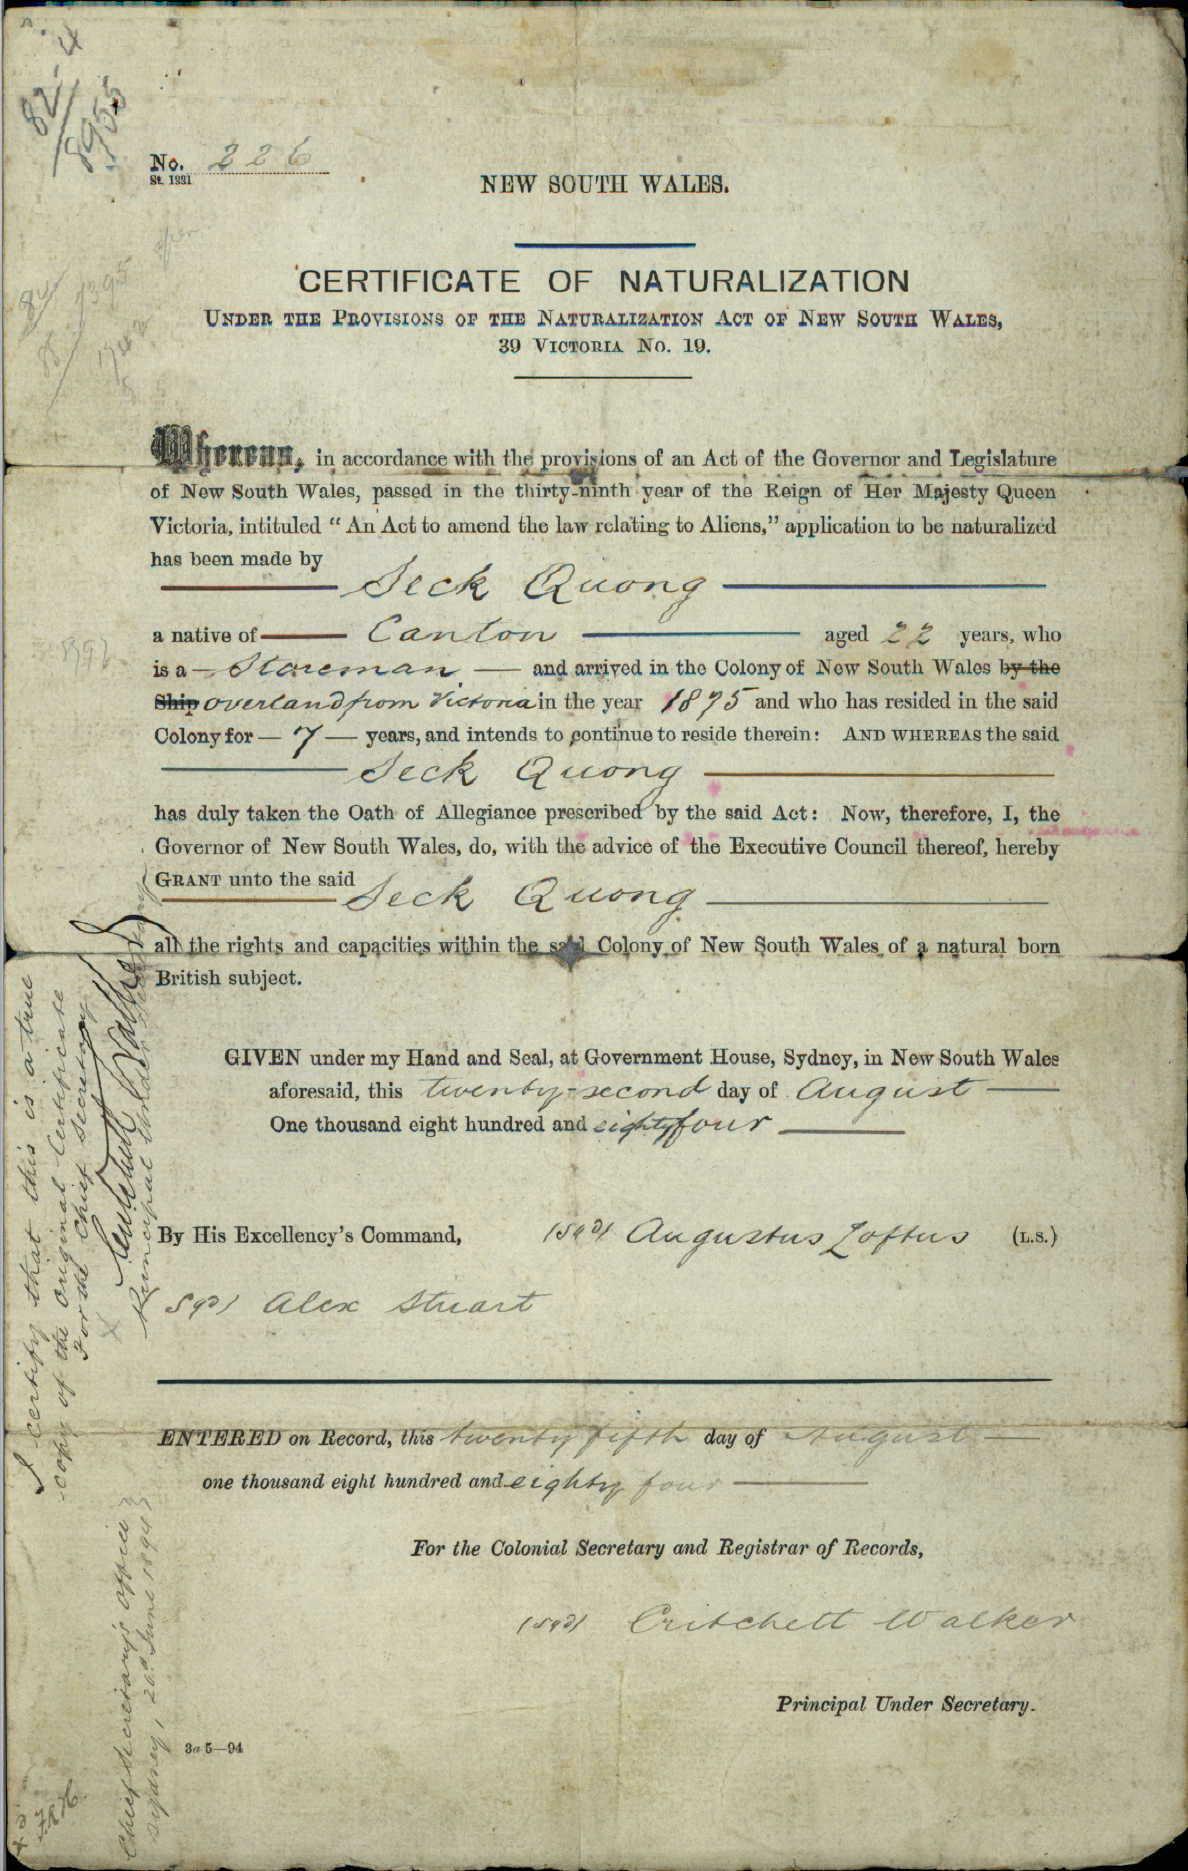 82-4
8955
No. 226
St. 1231
NEW SOUTH WALES.
CERTIFICATE OF NATURALIZATION
UNDER THE PROVISIONS OF THE NATURALIZATION ACT OF NEW SOUTH WALES,
39 VICTORIA No. 19.
Whereas, in accordance with the provisions of an Act of the Governor and Legislature
of New South Wales, passed in the thirty-ninth year of the Reign of Her Majesty Queen
Victoria, intituled “An Act to amend the law relating to Aliens,” application to be naturalized
has been made by
Seck Quong
a native of Canton aged 22 years, who
is a Storeman and arrived in the Colony of New South Wales by the
Ship overland from Victoria in the year 1875 and who has resided in the said
Colony for 7 years, and intends to continue to reside therein: AND WHEREAS the said
Seck Quong
has duly taken the Oath of Allegiance prescribed by the said Act: Now, therefore, I, the
Governor of New South Wales, do, with the advice of the Executive Council thereof, hereby
GRANT unto the said
Seck Quong
all the rights and capacities within the said Colony of New South Wales of a natural born
British subject.
GIVEN under my Hand and Seal, at Government House, Sydney, in New South Wales
aforesaid, this twenty-second day of August
One thousand eight hundred and eighty four
By His Excellency's Command, (sgd) Augustus Loftus (L.S.)
sgd) Alex Stuart
ENTERED on Record, this twenty fifth day of August
one thousand eight hundred and eighty four
For the Colonial Secretary and Registrar of Records,
(sgd) Critchett Walker
Principal Under Secretary.
3a 5—94
I certify that this is a true
copy of the original Certificate
For the Chief Secretary
Critchett Walker
Principal Under Secretary
Chief Secretary's Office
Sydney, 20th June 1894